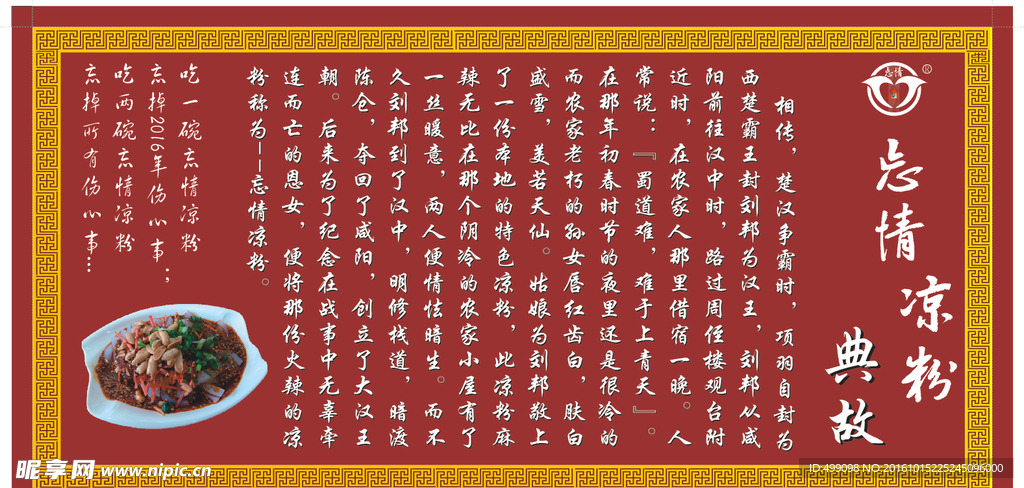 忘情
®
忘情
凉粉
典故
相传，楚汉争霸时，项羽自封为
西楚霸王封刘邦为汉王，刘邦从咸
阳前往汉中时，路过周侄楼观台附
近时，在农家人那里借宿一晚。人
常说：『蜀道难，难于上青天』。
在那年初春时节的夜里还是很冷的
而农家老朽的孙女唇红齿白，肤白
盛雪，美若天仙。姑娘为刘邦敬上
了一份本地的特色凉粉，此凉粉麻
辣无比在那个阴冷的农家小屋有了
一丝暖意，两人便情怯暗生。而不
久刘邦到了汉中，明修栈道，暗渡
陈仓，夺回了咸阳，创立了大汉王
朝。后来为了纪念在战事中无辜牵
连而亡的恩女，便将那份火辣的凉
粉称为——忘情凉粉。
吃一碗忘情凉粉
忘掉2016年伤心事；
吃两碗忘情凉粉
忘掉所有伤心事…
昵享网 www.nipic.cn
ID:499098 NO:20161015225245096000